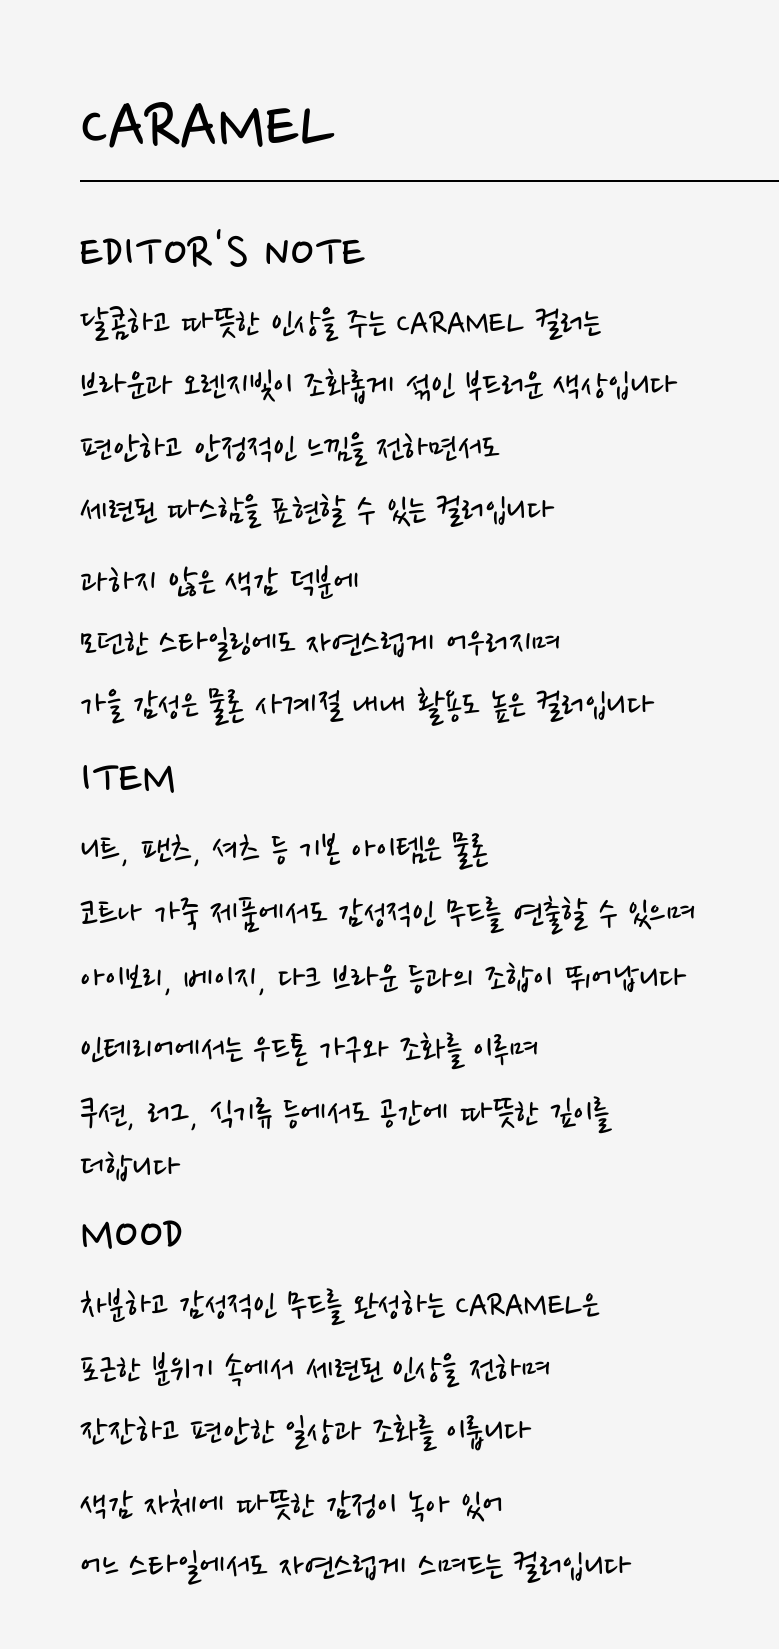 CARAMEL
EDITOR'S NOTE
달콤하고 따뜻한 인상을 주는 CARAMEL 컬러는
브라운과 오렌지빛이 조화롭게 섞인 부드러운 색상입니다
편안하고 안정적인 느낌을 전하면서도
세련된 따스함을 표현할 수 있는 컬러입니다
과하지 않은 색감 덕분에
모던한 스타일링에도 자연스럽게 어우러지며
가을 감성은 물론 사계절 내내 활용도 높은 컬러입니다
ITEM
니트, 팬츠, 셔츠 등 기본 아이템은 물론
코트나 가죽 제품에서도 감성적인 무드를 연출할 수 있으며
아이보리, 베이지, 다크 브라운 등과의 조합이 뛰어납니다
인테리어에서는 우드톤 가구와 조화를 이루며
쿠션, 러그, 식기류 등에서도 공간에 따뜻한 깊이를
더합니다
MOOD
차분하고 감성적인 무드를 완성하는 CARAMEL은
포근한 분위기 속에서 세련된 인상을 전하며
잔잔하고 편안한 일상과 조화를 이룹니다
색감 자체에 따뜻한 감정이 녹아 있어
어느 스타일에서도 자연스럽게 스며드는 컬러입니다